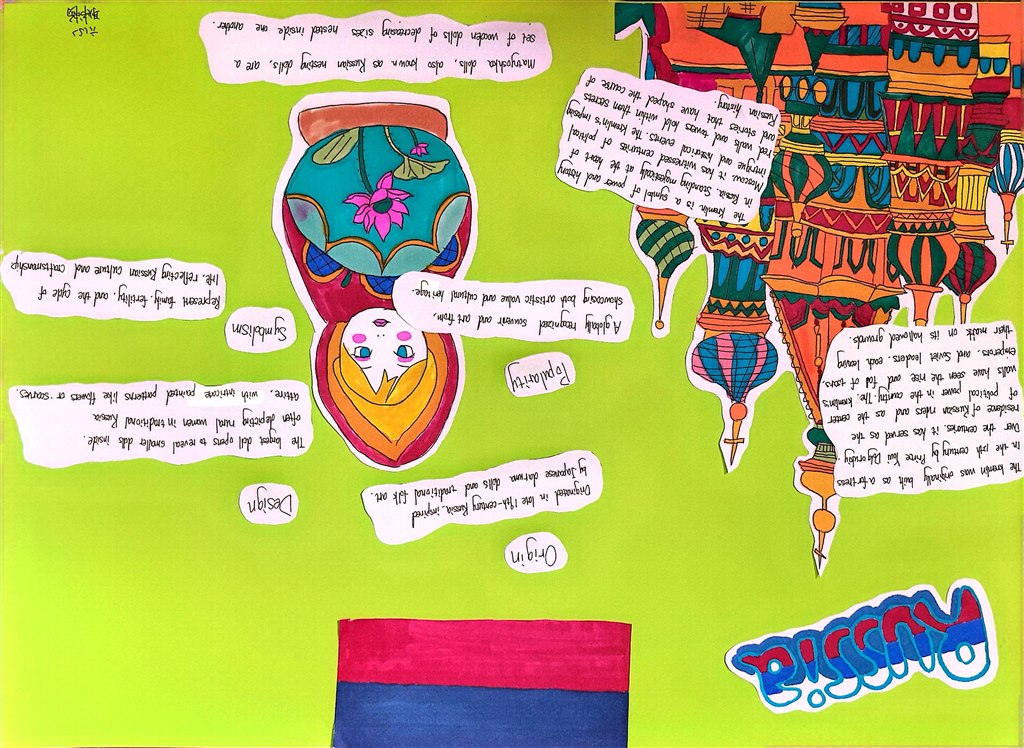 Russia
The kremlin was originally built as a fortress
in the 12th century by Prince Yuri Dolgorukiy.
Over the centuries, it has served as the
residence of Russian rulers and as the center
of political power in the country. The kremlin's
walls have seen the rise and fall of tsars,
emperors, and Soviet leaders, each leaving
their mark on its hallowed grounds.
The kremlin is a symbol of power and history
in Russia. Standing majestically at the heart of
Moscow, it has witnessed centuries of political
intrigue and historical events. The kremlin's imposing
red walls and towers hold within them secrets
and stories that have shaped the course of
Russian history.
Origin
Originated in late 19th-century Russia, inspired
by Japanese daruma dolls and traditional folk art.
Design
The largest doll opens to reveal smaller dolls inside.
often depicting rural women in traditional Russia
attire, with intricate painted patterns like flowers or scarves.
Popularity
A globally recognized souvenir and art from,
showcasing both artistic value and cultural heritage.
Symbolism
Represent family, fertility, and the cycle of
life, reflecting Russian culture and craftsmanship
Matryoshka dolls, also known as Russian nesting dolls, are a
set of wooden dolls of decreasing sizes nested inside one another.